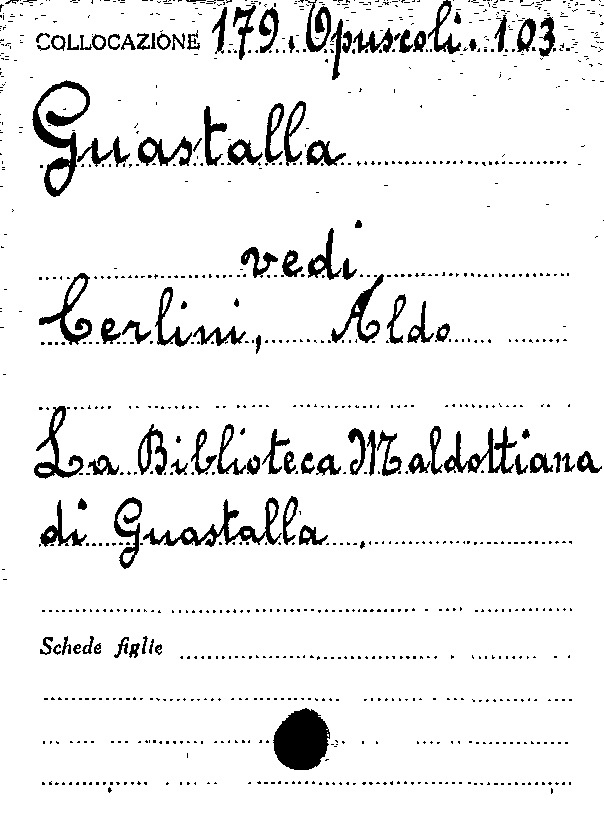 COLLOCAZIONE 179. Opuscoli. 103
Guastalla
vedi
Cerlini, Aldo
La Biblioteca Maldottiana
di Guastalla.
Schede figlie